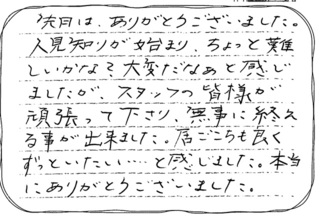 先日は、ありがとうございました。
人見知りが始まり、ちょっと難
しいかな？大変だなぁと感じ
ましたが、スタッフの皆様が
頑張って下さり、無事に終え
る事が出来ました。居ごこちも良く
ずっといたい…と感じました。本当
にありがとうございました。